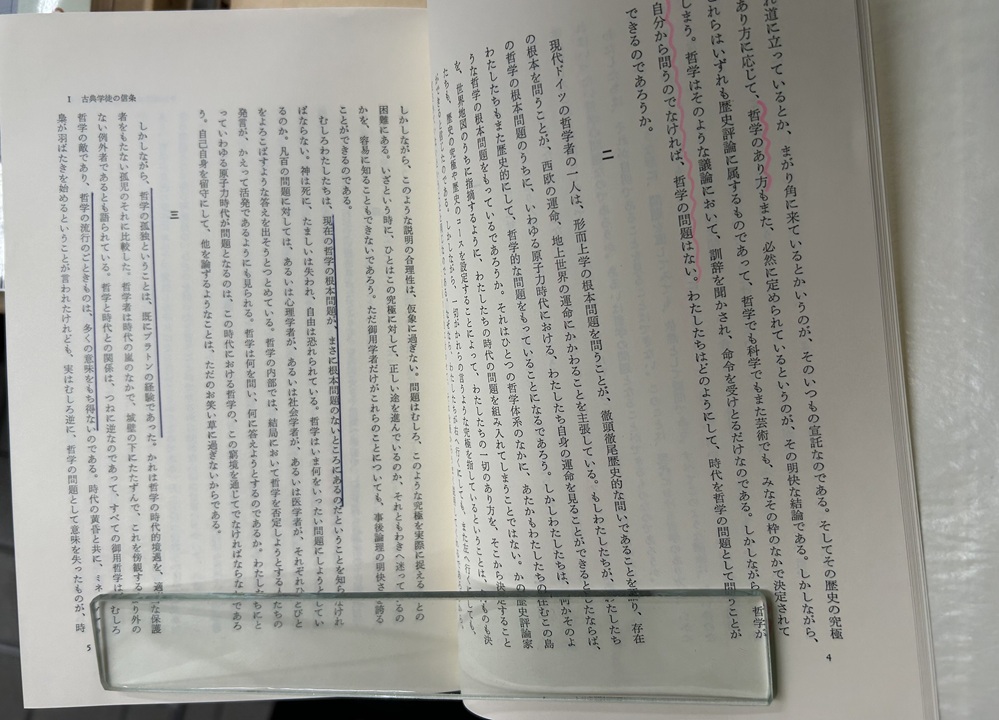 れ道に立っているとか、まがり角に来ているとかいうのが、そのいつもの宣託なのである。そしてその歴史の究極
あり方に応じて、哲学のあり方もまた、必然に定められているというのが、その明快な結論である。しかしながら、
れらはいずれも歴史評論に属するものであって、哲学でも科学でもまた芸術でも、みなその枠のなかで決定されて
しまう。哲学はそのような議論において、訓辞を聞かされ、命令を受けとるだけなのである。しかしながら、哲学が
自分から問うのでなければ、哲学の問題はない。わたしたちはどのようにして、時代を哲学の問題として問うことが
できるのであろうか。
二
現代ドイツの哲学者の一人は、形而上学の根本問題を問うことが、徹頭徹尾歴史的な問いであることを語り、存在
の根本を問うことが、西欧の運命、地上世界の運命にかかわることを主張している。もしわたしたちが、わたしたち
の哲学の根本問題のうちに、いわゆる原子力時代における、わたしたち自身の運命を見ることができるとしたならば、
わたしたちもまた歴史的にして、哲学的な問題をもっていることになるであろう。しかしわたしたちは、何かそのよ
うな哲学の根本問題をもっているであろうか。それはひとつの哲学体系のなかに、あたかもわたしたちの住むこの島
を、世界地図のうちに指摘するように、わたしたちの時代の問題を組み入れてしまうことではない。かの歴史評論家
たちも、歴史の究極や歴史のコースを設定することによって、わたしたちの一切のあり方を、そこから決定すること
4
しかしながら、このような説明の合理性は、仮象に過ぎない。問題はむしろ、このような究極を実際に捉えることの
困難にある。いざという時に、ひとはこの究極に対して、正しい途を進んでいるのか、それともわきへ迷っているの
かを、容易に知ることもできないであろう。ただ御用学者だけがこれらのことについても、事後論理の明快さを誇る
ことができるのである。
むしろわたしたちは、現在の哲学の根本問題が、まさに根本問題のないところにあるのだということを知らなけれ
ばならない。神は死に、たましいは失われ、自由は恐れられている。哲学はいま何をいったい問題にしようとしてい
るのか。凡百の問題に対しては、あるいは心理学者が、あるいは社会学者が、あるいは医学者が、それぞれひとびと
をよろこばすような答えを出そうとつとめている。哲学の内部では、結局において哲学を否定しようとする人たちの
発言が、かえって活発であるようにも見られる。哲学は何を問い、何に答えようとするのであるか。わたしたちにと
っていわゆる原子力時代が問題となるのは、この時代における哲学の、この窮境を通じてでなければならないであろ
う。自己自身を留守にして、他を論ずるようなことは、ただのお笑い草に過ぎないからである。
三
しかしながら、哲学の孤独ということは、既にプラトンの経験であった。かれは哲学の時代的境遇を、適当な保護
者をもたない孤児のそれに比較した。哲学者は時代の嵐のなかで、城壁の下にたたずんで、これを傍観するより外の
ない例外者であるとも語られている。哲学と時代との関係は、つねに逆なのであって、すべての御用哲学は、むしろ
哲学の敵であり、哲学の流行のごときものは、多くの意味をもち得ないのである。時代の黄昏と共に、ミネ
梟が羽ばたきを始めるということが言われたけれども、実はむしろ逆に、哲学の問題として意味を失ったものが、時
I 古典学徒の信条
5